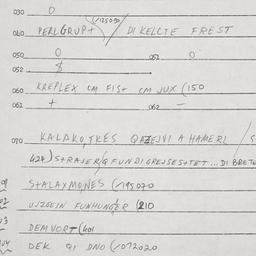 030 0
040 PERLGRUPT (/125090 / DI KELLTE FREST
050 0 051 0
052 $
060 KREPLEX CM FIST CM JUX (150
061 + 062 -
070 KALAKOTKES QAZEJVI A HAMERL /
424) STRAJER/Q FUNDIGREJSESTET... DI BRETW
STALAXMONES (/195070
UJZGEIN FUNHUNGER (210
DEMVORT (401
DEK QI DNO (/072020